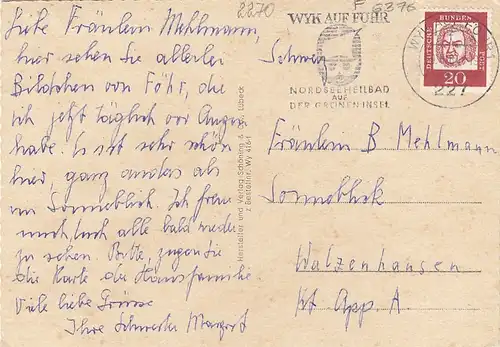 2270
F 6376
Liebe Fräulein Mehlmann,
hier sehen Sie allerlei
Bildchen von Föhr, die
ich jetzt täglich vor Augen
habe. Es ist sehr schön
hier, ganz anders als
im Sonneblick. Ich freue
mich, Euch alle bald wieder
zu sehen. Bitte, zeigen Sie
die Karte der Hausfamilie
Viele liebe Grüsse
Ihre Schwester Margret
Hersteller und Verlag: Schöning & Lübeck
Bestellnr. Wy 416
WYK AUF FÖHR
NORDSEEHEILBAD
AUF
DER GRÜNEN INSEL
227
DEUTSCHE BUNDESPOST
20
Schweiz
Fräulein B Mehlmann
Sonneblick
Walzenhausen
Kt App. A.